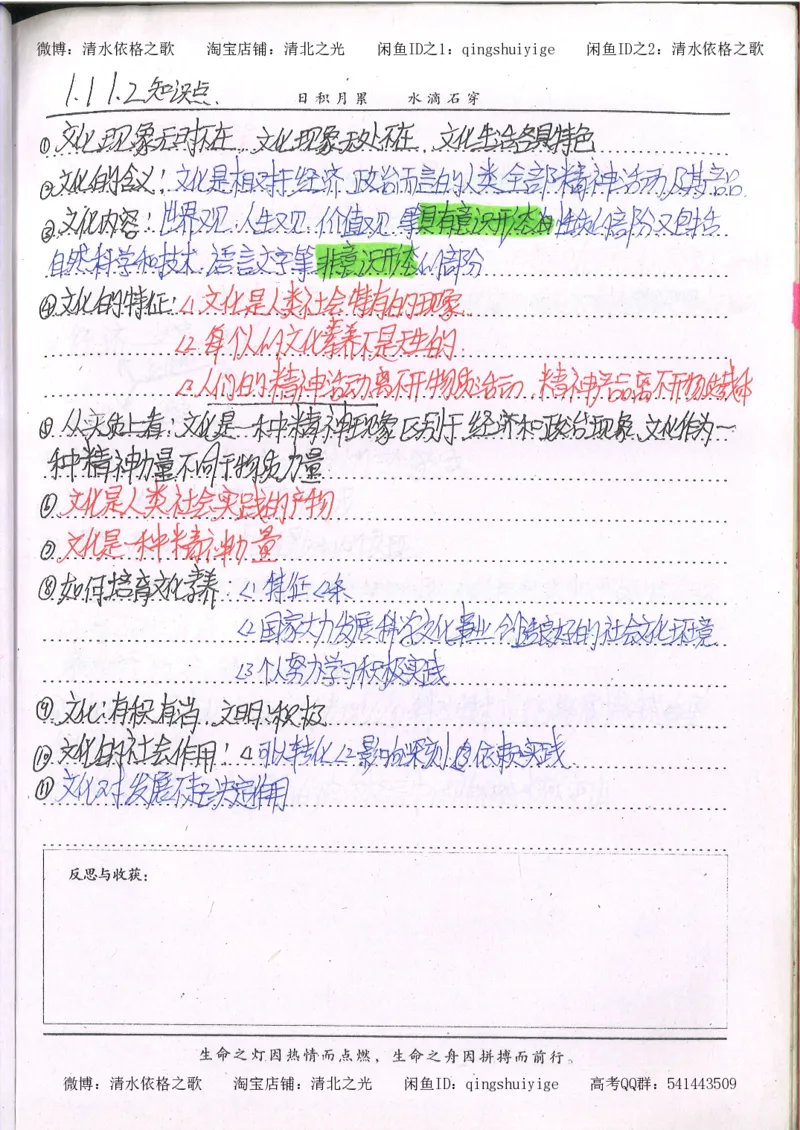 微博：清水依格之歌 淘宝店铺：清北之光 闲鱼ID之1：qingshuiyige 闲鱼ID之2：清水依格之歌
1.1 1.2知识点
日积月累 水滴石穿
①文化现象无时不在，文化现象无处不在，文化生活各具特色
②文化的含义：文化是相对于经济、政治而言的人类全部精神活动及其产品
③文化内容：世界观、人生观、价值观等具有意识形态的性质的部分又包括
自然科学和技术、语言文字等非意识形态的部分
④文化的特征：<1 文化是人类社会特有的现象
<2 每个人的文化素养不是天生的
<3 人们的精神活动离不开物质活动，精神产品离不开物质载体
⑤从实质上看：文化是一种精神现象区别于经济和政治现象、文化作为一
种精神力量不同于物质力量
⑥文化是人类社会实践的产物
⑦文化是一种精神力量
⑧如何培育文化素养：<1 特征<2条
<2 国家大力发展科学文化事业创造良好的社会文化环境
<3 个人努力学习积极实践
⑨文化：有积有消，文明：积极
⑩文化的社会作用：<1 可以转化<2 影响深刻<3 依赖实践
⑪文化对发展不起决定作用
反思与收获：
生命之灯因热情而点燃，生命之舟因拼搏而前行。
微博：清水依格之歌 淘宝店铺：清北之光 闲鱼ID：qingshuiyige 高考QQ群：541443509